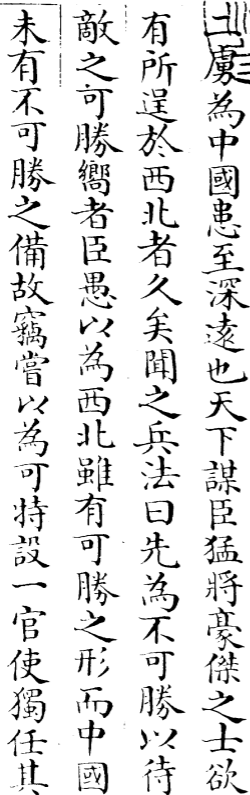 二虜為中國患至深遠也天下謀臣猛將豪傑之士欲
有所逞於西北者久矣聞之兵法曰先為不可勝以待
敵之可勝嚮者臣愚以為西北雖有可勝之形而中國
未有不可勝之備故竊嘗以為可特設一官使獨任其